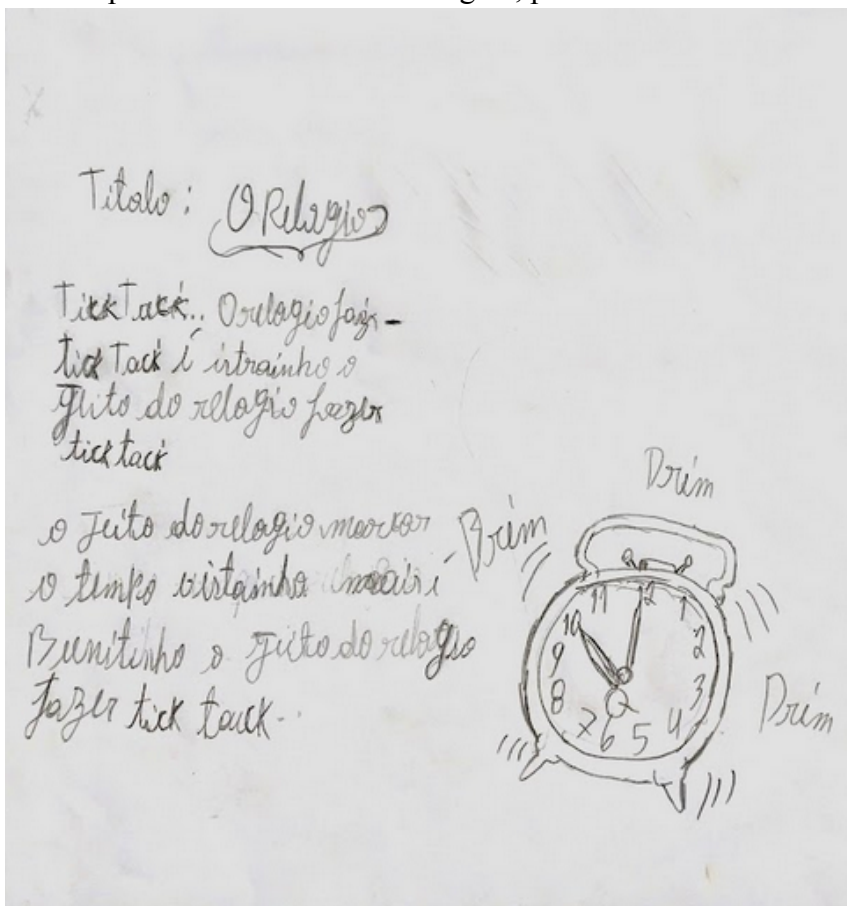 Titalo: O Relagio
TickTack.. O relagio fazr-
tick Tack é istrainho o
geito do relagio fazer
tick tack
o Jeito do relagio markar
o tempo istainho mais i
Bunitinho o Jeito do relagio
fazer tick tack..
Drím
Brím
Drím
11 12 1
10 2
9 3
8 4
7 6 5